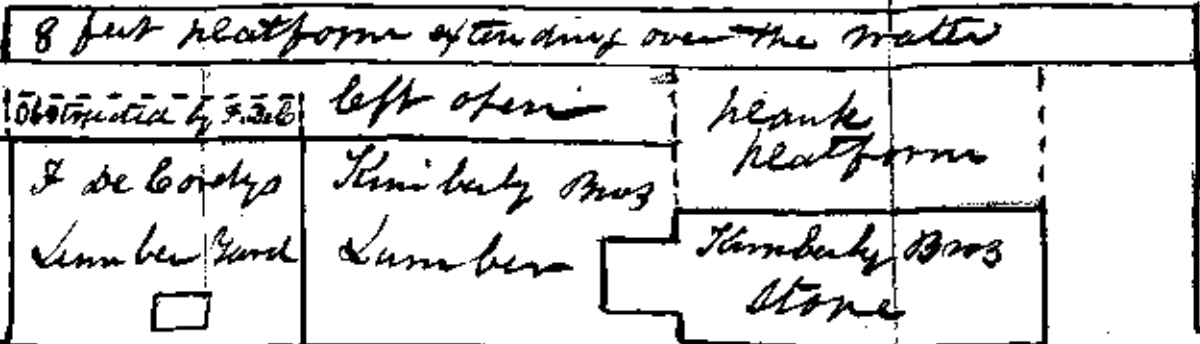 8 feet platform extending over the water
Obstructed by F. DeC
left open
plank
platform
F De Cordys
Lumber Yard
Kimberly Bros
Lumber
Kimberly Bros
Store